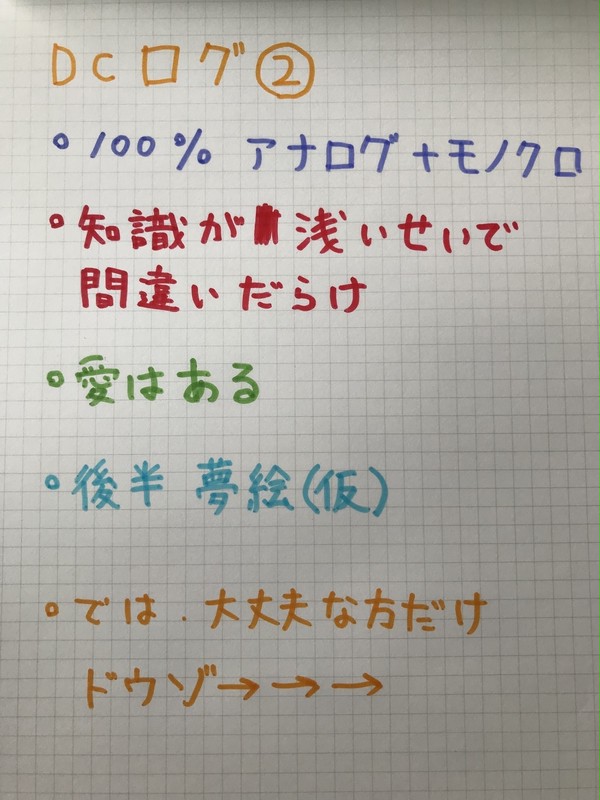 DCログ②
○100% アナログ+モノクロ
○知識が浅いせいで
間違いだらけ
○愛はある
○後半 夢絵(仮)
○では.大丈夫な方だけ
ドウゾ→→→